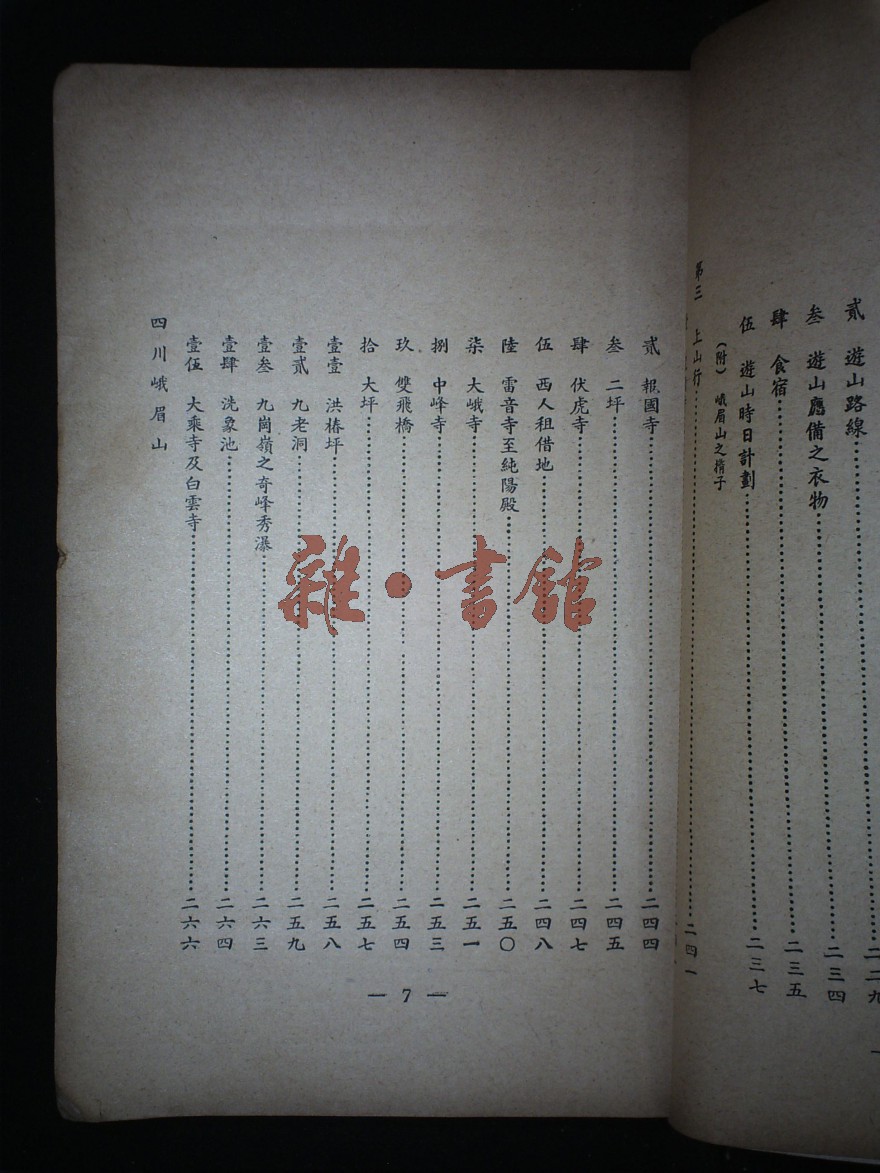 貳 遊山路線……二二九
叁 遊山應備之衣物……二三四
肆 食宿……二三五
伍 遊山時日計劃……二三七
（附）峨眉山之揹子
第三 上山行……二四一
貳 報國寺……二四四
叁 二坪……二四五
肆 伏虎寺……二四七
伍 西人租借地……二四八
陸 雷音寺至純陽殿……二五〇
柒 大峨寺……二五一
捌 中峰寺……二五三
玖 雙飛橋……二五四
拾 大坪……二五七
壹壹 洪椿坪……二五八
壹貳 九老洞……二五九
壹叁 九崗嶺之奇峰秀瀑……二六三
壹肆 洗象池……二六四
壹伍 大乘寺及白雲寺……二六六
四川峨眉山
— 7 —
雜·書館